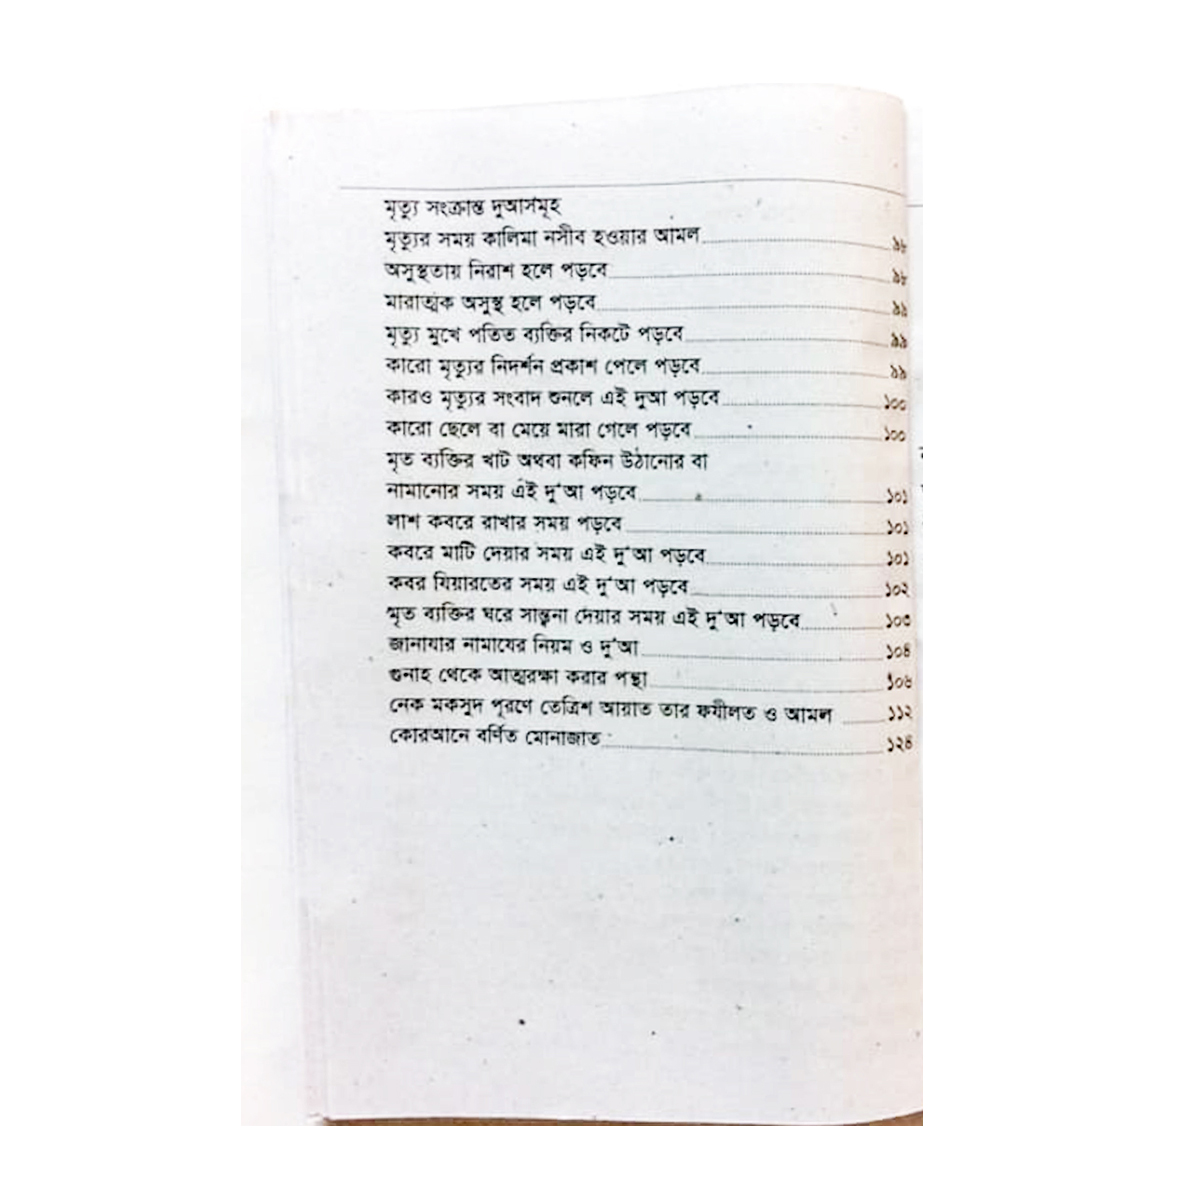 মৃত্যু সংক্রান্ত দুআসমূহ
মৃত্যুর সময় কালিমা নসীব হওয়ার আমল ৯৮
অসুস্থতায় নিরাশ হলে পড়বে ৯৮
মারাত্মক অসুস্থ হলে পড়বে ৯৯
মৃত্যু মুখে পতিত ব্যক্তির নিকটে পড়বে ৯৯
কারো মৃত্যুর নিদর্শন প্রকাশ পেলে পড়বে ৯৯
কারও মৃত্যুর সংবাদ শুনলে এই দুআ পড়বে ১০০
কারো ছেলে বা মেয়ে মারা গেলে পড়বে ১০০
মৃত ব্যক্তির খাট অথবা কফিন উঠানোর বা
নামানোর সময় এই দু'আ পড়বে ১০১
লাশ কবরে রাখার সময় পড়বে ১০১
কবরে মাটি দেয়ার সময় এই দু'আ পড়বে ১০১
কবর যিয়ারতের সময় এই দু'আ পড়বে ১০২
মৃত ব্যক্তির ঘরে সান্ত্বনা দেয়ার সময় এই দু'আ পড়বে ১০৩
জানাযার নামাযের নিয়ম ও দু'আ ১০৪
গুনাহ থেকে আত্মরক্ষা করার পন্থা ১০৬
নেক মকসুদ পূরণে তেত্রিশ আয়াত তার ফযীলত ও আমল ১১২
কোরআনে বর্ণিত মোনাজাত ১২৪